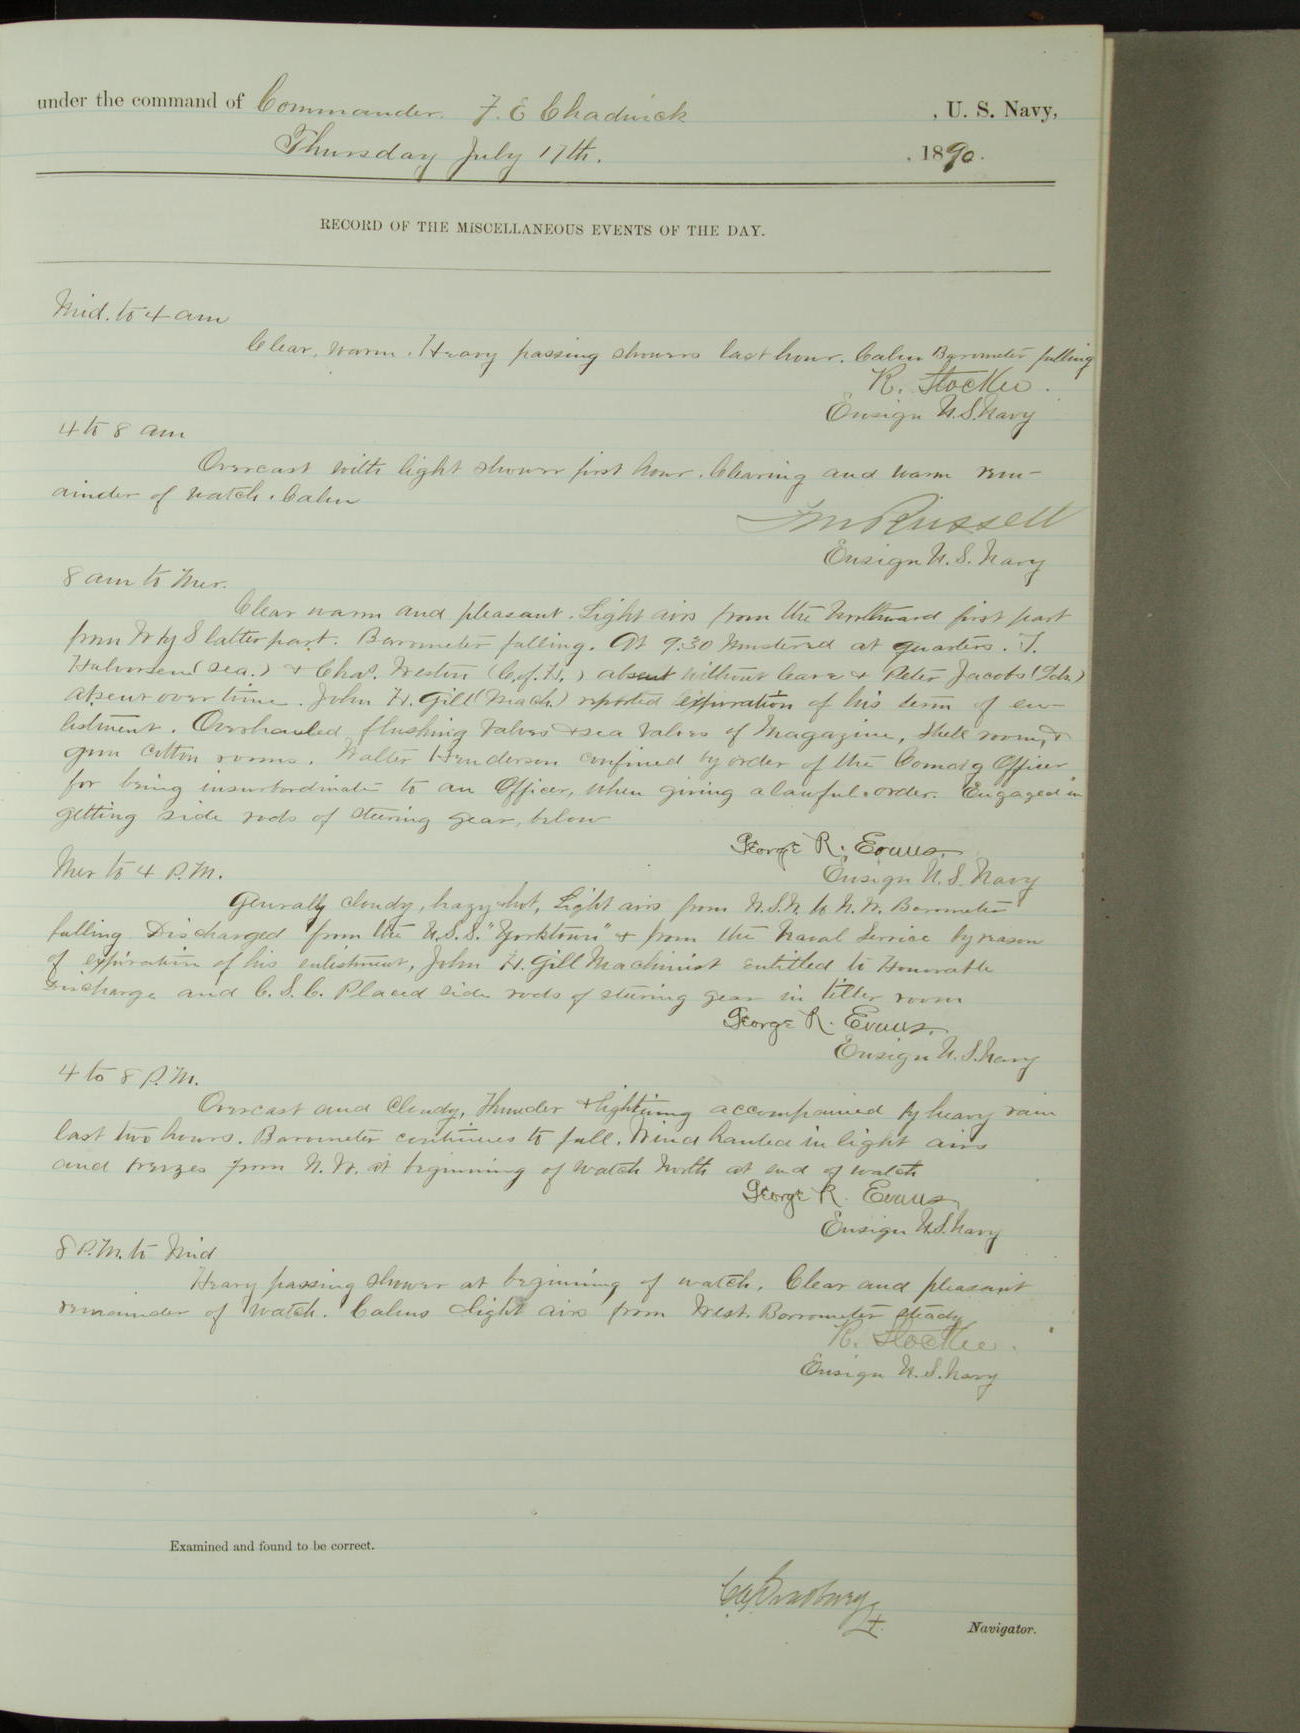 under the command of Commander. F. E Chadwick , U. S. Navy,
Thursday July 17th. , 1890.
RECORD OF THE MISCELLANEOUS EVENTS OF THE DAY.
Mid. to 4 am
Clear, warm. Heavy passing showers last hour. Calm Barometer falling
R. Stocker.
Ensign U.S. Navy
4 to 8 am
Overcast with light shower first hour. Clearing and warm rem-
ainder of watch. Calm
Russell
Ensign U. S. Navy
8 am to Mer.
Clear warm and pleasant. Light airs from the Northward first part
from W by S latter part. Barometer falling. At 9:30 Mustered at quarters. T.
Halvorsen (Sea.) & Chas. Westin (C. of H.) absent without leave & Peter Jacobs
absent over time. John H. Gill (Mach) reported expiration of his term of en-
listment. Overhauled flushing valves & sea valves of Magazine, Shell room, &
gun cotton rooms. Walter Henderson confined by order of the Comd'g Officer
for being insurbordinate to an Officer, when giving a lawful order. Engaged in
getting side rods of steering gear, below
George R. Evans.
Ensign U. S. Navy
Mer to 4 P.M.
Generally cloudy, hazy hot, Light airs from W.S.W. to N.W. Barometer
falling Discharged from the U.S.S. "Yorktown" & from the Naval Service by reason
of expiration of his enlistment, John H. Gill Machinist entitled to Honorable
Discharge and C. S. C. Placed side rods of steering gear in tiller room
George R. Evans.
Ensign U. S. Navy
4 to 8 P.M.
Overcast and Cloudy, Thunder & lightning accompanied by heavy rain
last two hours. Barometer continues to fall. Wind hauled in light airs
and breezes from N. W. at beginning of watch North at end of watch
George R. Evans
Ensign U.S. Navy
8 P.M. to Mid
Heavy passing shower at beginning of watch. Clear and pleasant
remainder of watch. Calms & light airs from West. Barrometer steady
R. Stocker.
Ensign U. S. Navy
Examined and found to be correct.
Navigator.